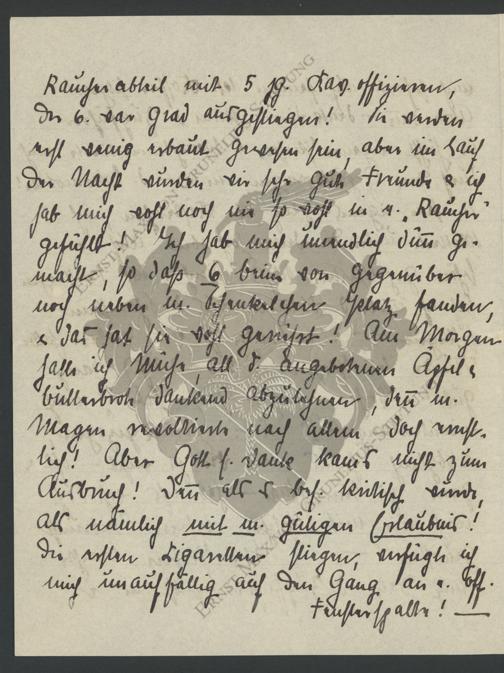 Raucherabteil mit 5 jg. Kav.offizieren,
der 6. war grad ausgestiegen! Sie werden
erst wenig erbaut gewesen sein, aber im Lauf
der Nacht wurden wir sehr gute Freunde & ich
hab mich wohl noch nie so wohl in e. „Raucher"
gefühlt! Ich hab mich unendlich dünn ge-
macht, so daß 6 beine von gegenüber
noch neben m. Schenkelchen Platz fanden,
& das hat sie wohl gerührt! Am Morgen
hatte ich Mühe, all d. angebotenen Äpfel &
butterbrote dankend abzulehnen, denn m.
Magen revoltierte nach allem doch ernst-
lich! Aber Gott s. Dank kam's nicht zum
Ausbruch! Denn als es bes. kritisch wurde,
als nämlich mit m. gütigen Erlaubnis!
die ersten Zigaretten stiegen, verfügte ich
mich unauffällig auf den Gang an e. off.
Fensterspalte! —